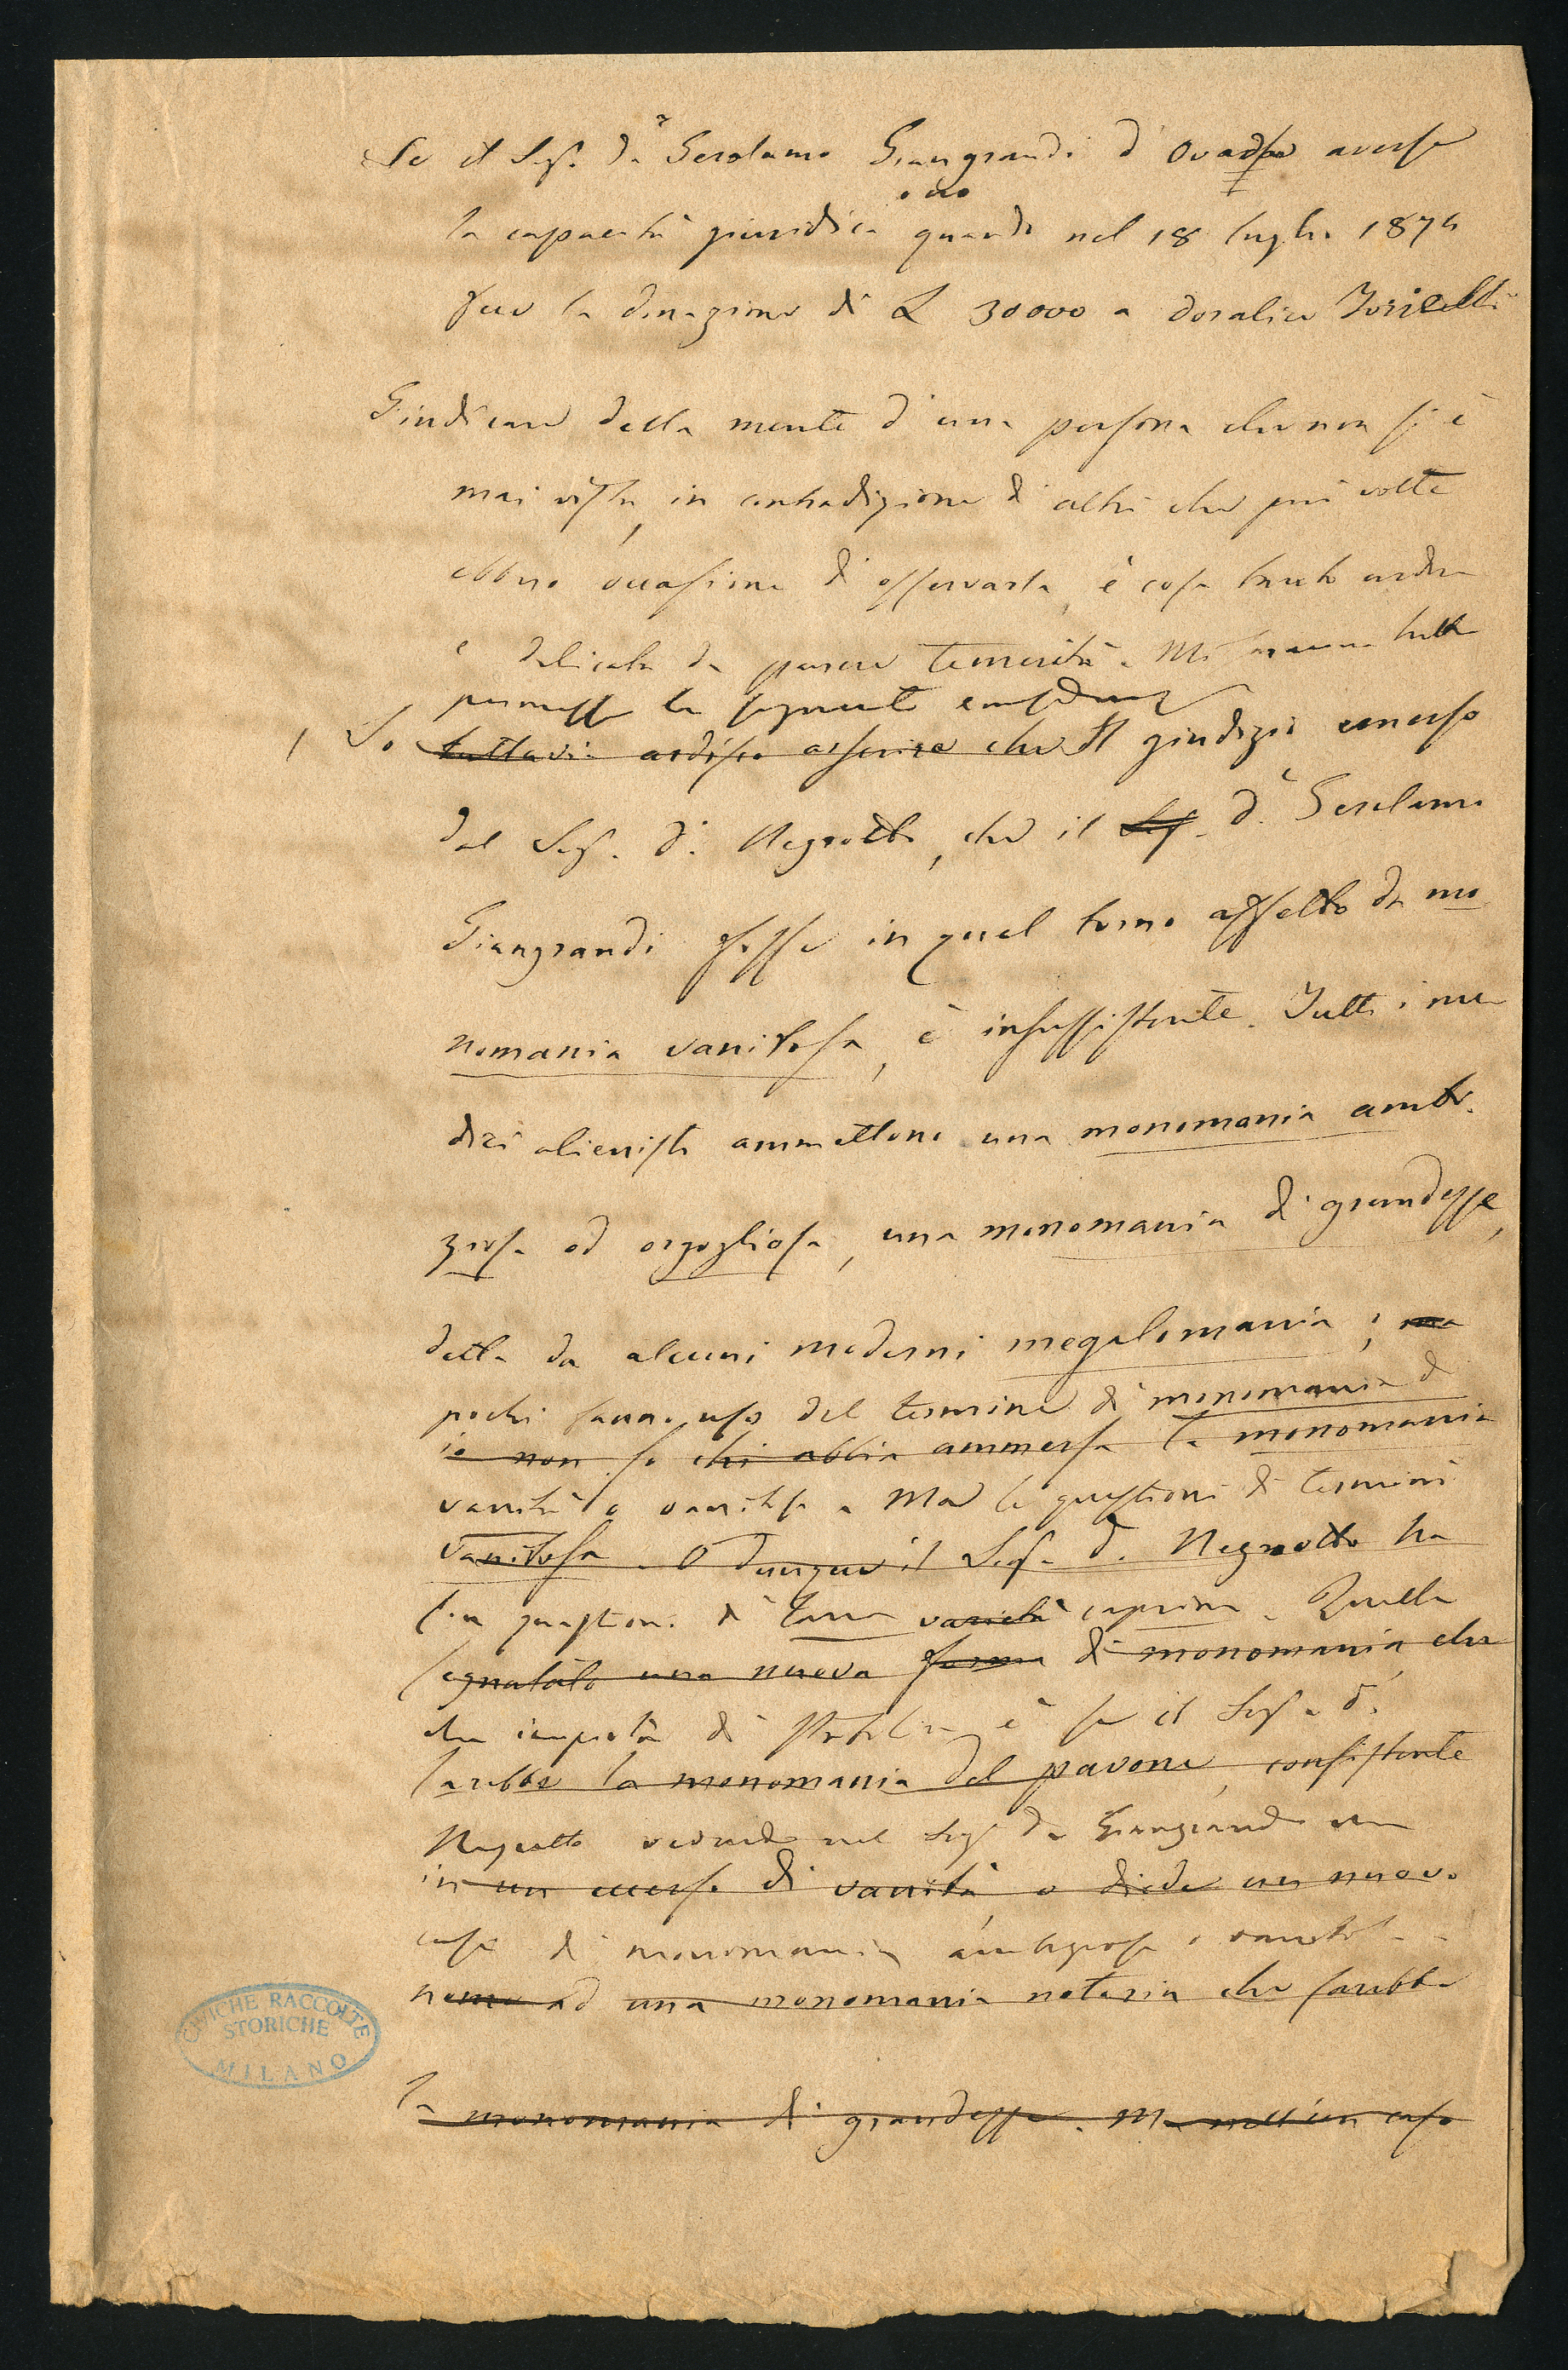 Se il Sig. Dr Gerolamo Giangrandi d'Ovada avesse
o no
la capacità giuridica quando nel 18 luglio 1874
fece la donazione di L 30000 a Doralice Torielli
Giudicare della mente d'una persona che non si è
mai vista, in contradizione di altri che più volte
ebbero occasione di osservarla, è cosa tanto ardua
e delicata da parere temerità. Mi saranno tutta
permesse le seguenti
1 So tuttavia ardisco asserire che Il giudizio emesso
dal Sig. D. Negrotto, che il Sig. D. Gerolamo
Giangrandi fosse in quel torno affetto da mo
nomania vanitosa, è insussistente. Tutti i me
dici alienisti ammettono una monomania ambi
ziosa od orgogliosa, una monomania di grandezze,
detta da alcuni moderni megalomania; ma
pochi fanno uso del termine di monomania di
io non so chi abbia ammessa la monomania
vanità o vanitosa. Ma le questioni di termini
vanitosa. O dunque il Sig. D. Negrotto ha
son questioni di lana caprina. Quella
segnalato una nuova forma di monomania, che
che importa di stabilire è se il Sig. D.
sarebbe la monomania del pavone, consistente
Negrotto vedendo nel Sig. Dr Giangrandi un
in un eccesso di vanità, o diede un nuovo
caso di monomania ambiziosa o vanitosa
nome ad una monomania notoria che sarebbe
la monomania di grandezze. Ma nell'un caso
CIVICHE RACCOLTE
STORICHE
MILANO